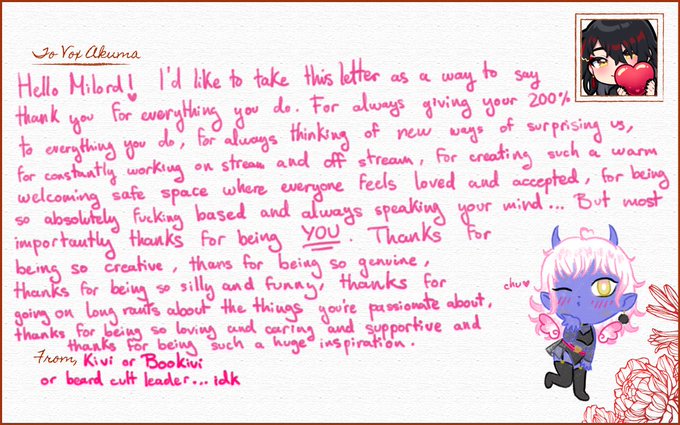 To Vox Akuma
Hello Milord! I'd like to take this letter as a way to say
thank you for everything you do. For always giving your 200%
to everything you do, for always thinking of new ways of surprising us,
for constantly working on stream and off stream, for creating such a warm
welcoming safe space where everyone feels loved and accepted, for being
so absolutely fucking based and always speaking your mind... But most
importantly thanks for being YOU. Thanks for
being so creative, thans for being so genuine,
thanks for being so silly and funny, thanks for
going on long rants about the things you're passionate about,
thanks for being so loving and caring and supportive and
thanks for being such a huge inspiration.
chu♥
From, Kivi or Bookivi
or beard cult leader... idk